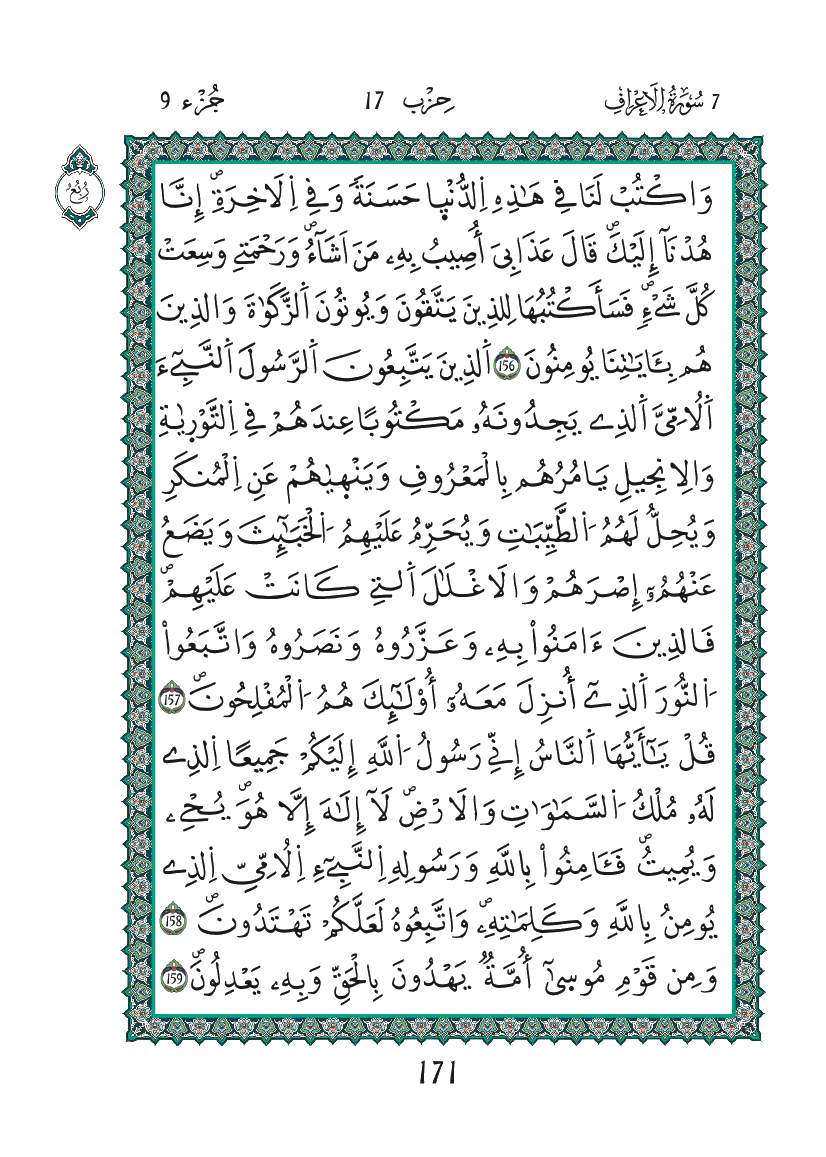 7 سُورَةُ الَاعْرَافِ حِزْب 17 جُزْء 9
رُبُعُ
وَاكْتُبْ لَنَا فِے هَٰذِهِ اِ۬لدُّنْي۪ا حَسَنَةٗ وَفِے اِ۬لَاخِرَةِۖ إِنَّا
هُدْنَآ إِلَيْكَۖ قَالَ عَذَابِيَ أُصِيبُ بِهِۦ مَنَ اَشَآءُۖ وَرَحْمَتِے وَسِعَتْ
كُلَّ شَےْءٖۖ فَسَأَكْتُبُهَا لِلذِينَ يَتَّقُونَ وَيُوتُونَ اَ۬لزَّكَوٰةَ وَالذِينَ
هُم بِـَٔايَٰتِنَا يُومِنُونَ 156 اَ۬لذِينَ يَتَّبِعُونَ اَ۬لرَّسُولَ اَ۬لنَّبِےٓءَ
اَ۬لُامِّيَّ اَ۬لذِے يَجِدُونَهُۥ مَكْتُوباً عِندَهُمْ فِے اِ۬لتَّوْر۪يٰةِ
وَالِانجِيلِ يَامُرُهُم بِالْمَعْرُوفِ وَيَنْه۪يٰهُمْ عَنِ اِ۬لْمُنكَرِ
وَيُحِلُّ لَهُمُ اُ۬لطَّيِّبَٰتِ وَيُحَرِّمُ عَلَيْهِمُ اُ۬لْخَبَٰٓئِثَ وَيَضَعُ
عَنْهُمُۥٓ إِصْرَهُمْ وَالَاغْلَٰلَ اَ۬لتِے كَانَتْ عَلَيْهِمْۖ
فَالذِينَ ءَامَنُواْ بِهِۦ وَعَزَّرُوهُ وَنَصَرُوهُ وَاتَّبَعُواْ
اُ۬لنُّورَ اَ۬لذِےٓ أُنزِلَ مَعَهُۥٓ أُوْلَٰٓئِكَ هُمُ اُ۬لْمُفْلِحُونَۖ 157
قُلْ يَٰٓأَيُّهَا اَ۬لنَّاسُ إِنِّے رَسُولُ اُ۬للَّهِ إِلَيْكُمْ جَمِيعاً اِ۬لذِے
لَهُۥ مُلْكُ اُ۬لسَّمَٰوَٰتِ وَالَارْضِۖ لَآ إِلَٰهَ إِلَّا هُوَۖ يُحْيِۦ
وَيُمِيتُۖ فَـَٔامِنُواْ بِاللَّهِ وَرَسُولِهِ اِ۬لنَّبِےٓءِ اِ۬لُامِّيِّ اِ۬لذِے
يُومِنُ بِاللَّهِ وَكَلِمَٰتِهِۖ وَاتَّبِعُوهُ لَعَلَّكُمْ تَهْتَدُونَۖ 158
وَمِن قَوْمِ مُوس۪يٰٓ أُمَّةٞ يَهْدُونَ بِالْحَقِّ وَبِهِۦ يَعْدِلُونَۖ 159
171